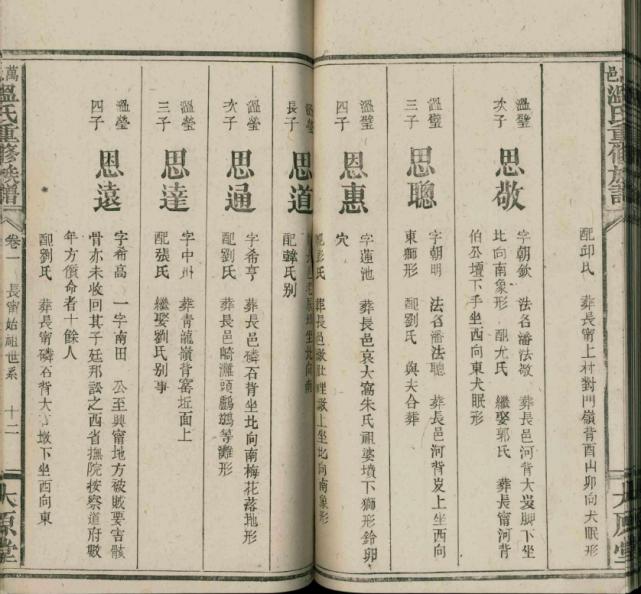 邑溫氏重修族譜
太原堂
配邱氏 葬長甯上村對門嶺背酉山卯向犬眠形
溫璧
次子
思敬
字朝欽 法名潘法敬 葬長邑河背大岌脚下坐
比向南象形 配尤氏 繼娶郭氏 葬長甯河背
伯公壇下手坐西向東犬眠形
溫璧
三子
思聰
字朝明 法名潘法聰 葬長邑河背岌上坐西向
東獅形 配劉氏 與夫合葬
溫璧
四子
恩惠
字蓮池 葬長邑袁大富朱氏祖婆墳下獅形鈴卯
穴
配彭氏 葬長邑
坐北向南象形
溫瑩
長子
思道
配韓氏别
溫瑩
次子
思通
字希亨 葬長邑磷石背坐北向南梅花落地形
配劉氏 葬長邑崎灘頭鸕鷀等灘形
溫瑩
三子
思達
字中州 葬青龍嶺背窰坵面上
配張氏 繼娶劉氏别事
溫瑩
四子
恩遠
字希高 一字南田 公至興甯地方被賊要吉骸
骨亦未收回其子廷邦訟之西省撫院按察道府數
年方償命者十餘人
配劉氏 葬長甯磷石背大官墩下坐西向東
萬邑溫氏重修族譜
卷一 長甯始祖世系 十二
太原堂